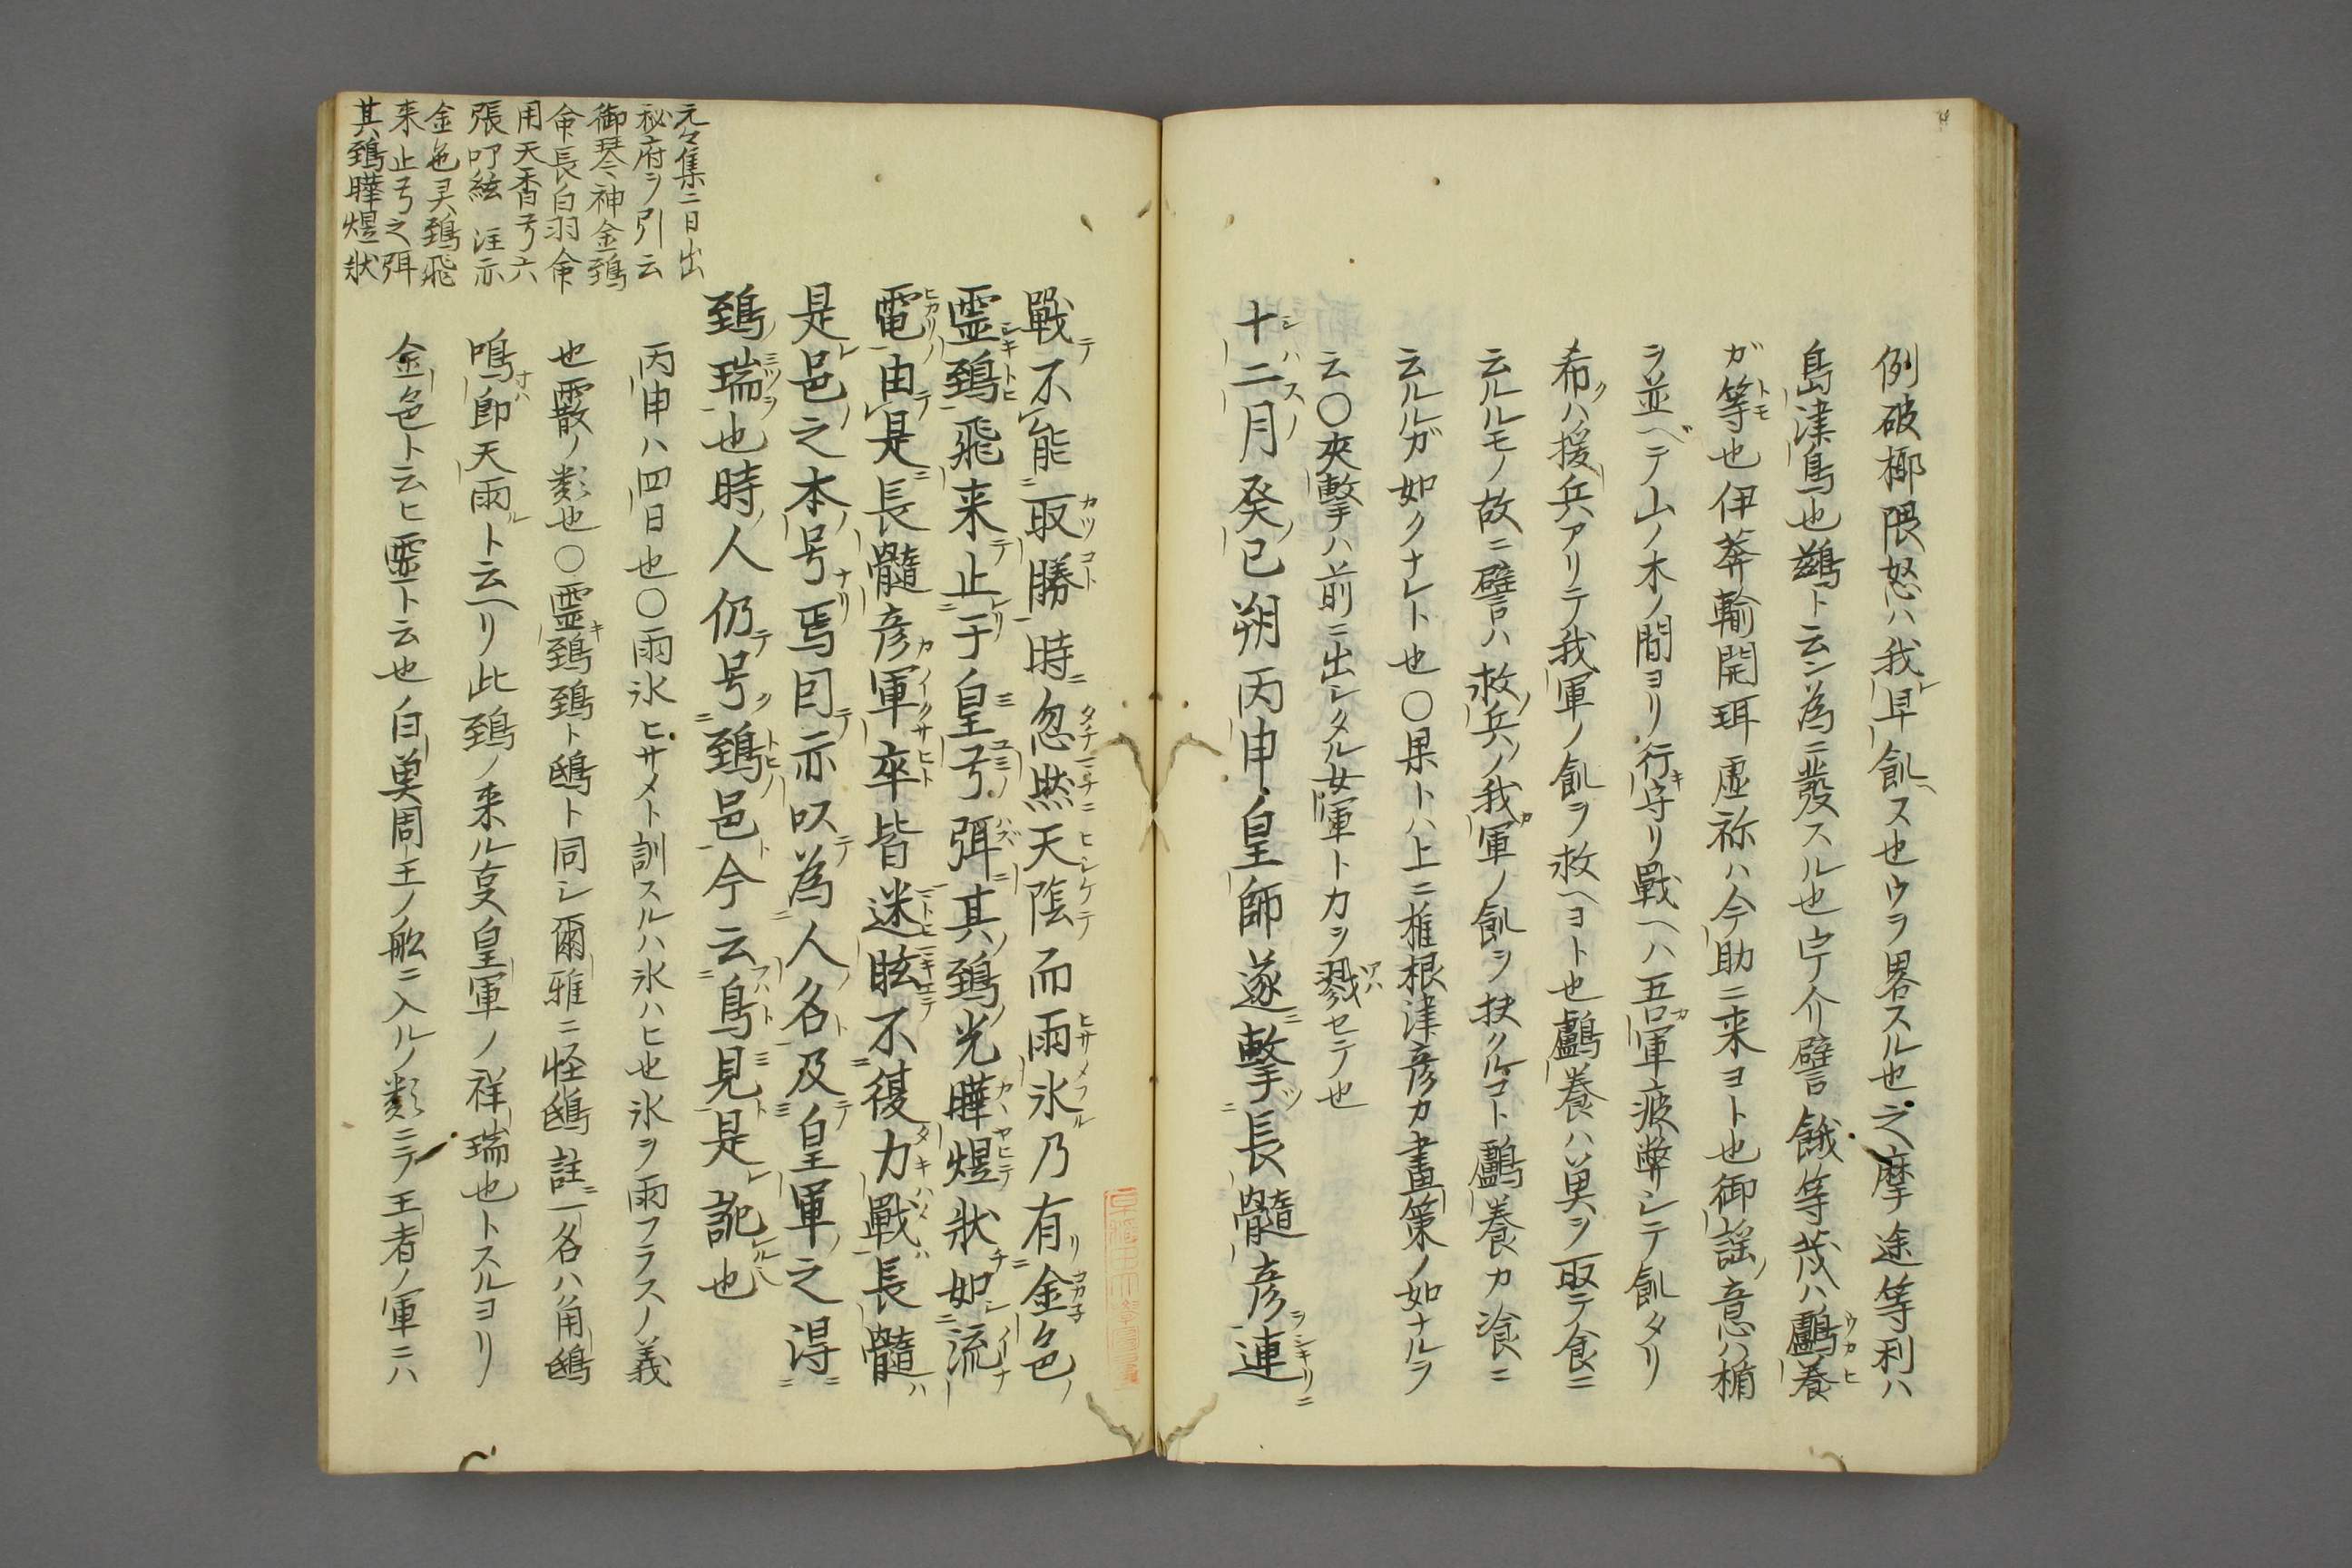 例破椰隈怒ハ我レ早飢ヘス也ウヲ畧スル也之摩途等利ハ
島津鳥也鷀ト云ン為ニ發スル也宇介譬餓等茂ハ鸕養
ガ等也伊莽輸開珥虚祢ハ今助ニ来ヨト也御謡ノ意ハ楯
ヲ並ヘテ山ノ木ノ間ヨリ行キ守リ戰ヘハ吾カ軍疲弊シテ飢タリ
希クハ援兵アリテ我軍ノ飢ヲ救ヘヨト也鸕養ハ奧ヲ取テ食ニ
云ルルモノ故ニ譬ハ救ノ兵ノ我カ軍ノ飢ヲ扶クルコト鸕養カ飡ニ
云ルルガ如クナレト也〇果トハ上ニ椎根津彦カ畫策ノ如ナルヲ
云〇夾撃ハ前ニ出シタル女軍トカヲ戮セテ也
十二月癸巳朔丙申皇師遂撃長髓彦連
戰不能取勝時忽然天陰而雨氷乃有金色
霊鵄飛来止于皇弓弭其鵄光曄煜狀如流
電由是長髓彦軍卒皆迷眩不復力戰長髓
是邑之本号焉因亦以為人名及皇軍之得
鵄瑞也時人仍号鵄邑今云鳥見是訛也
丙申ハ四日也〇雨氷ヒサメト訓スルハ氷ハヒ也氷ヲ雨フラスノ義
也霰ノ類也〇霊鵄鵄ト鴟ト同シ爾雅ニ怪鴟註ニ一名ハ角鴟
鳴即天雨ルト云ヘリ此鵄ノ来ル叓皇軍ノ祥瑞也トスルヨリ
金色ト云ヒ霊ト云也白奧周王ノ舩ニ入ルノ類ニテ王者ノ軍ニハ
元々集ニ曰出
秘府ヲ引云
御琴神金鵄
命長白羽命
用天香弓六
張叩絃 注亦
金色灵鵄飛
来止弓之弭
其鵄曄煜狀